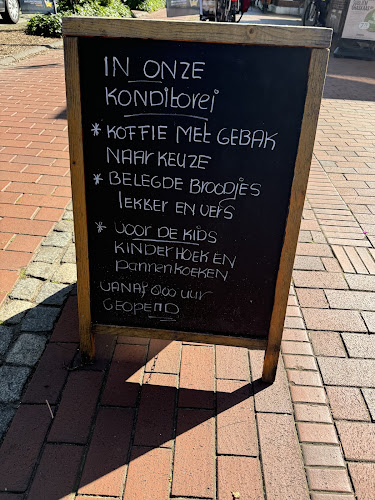 IN ONZE
KONDITOREI
* KOFFIE MET GEBAK
NAAR KEUZE
* BELEGDE BROODJES
LEKKER EN VERS
* VOOR DE KIDS
KINDERHOEK EN
PANNENKOEKEN
VANAF 8:00 UUR
GEOPEND